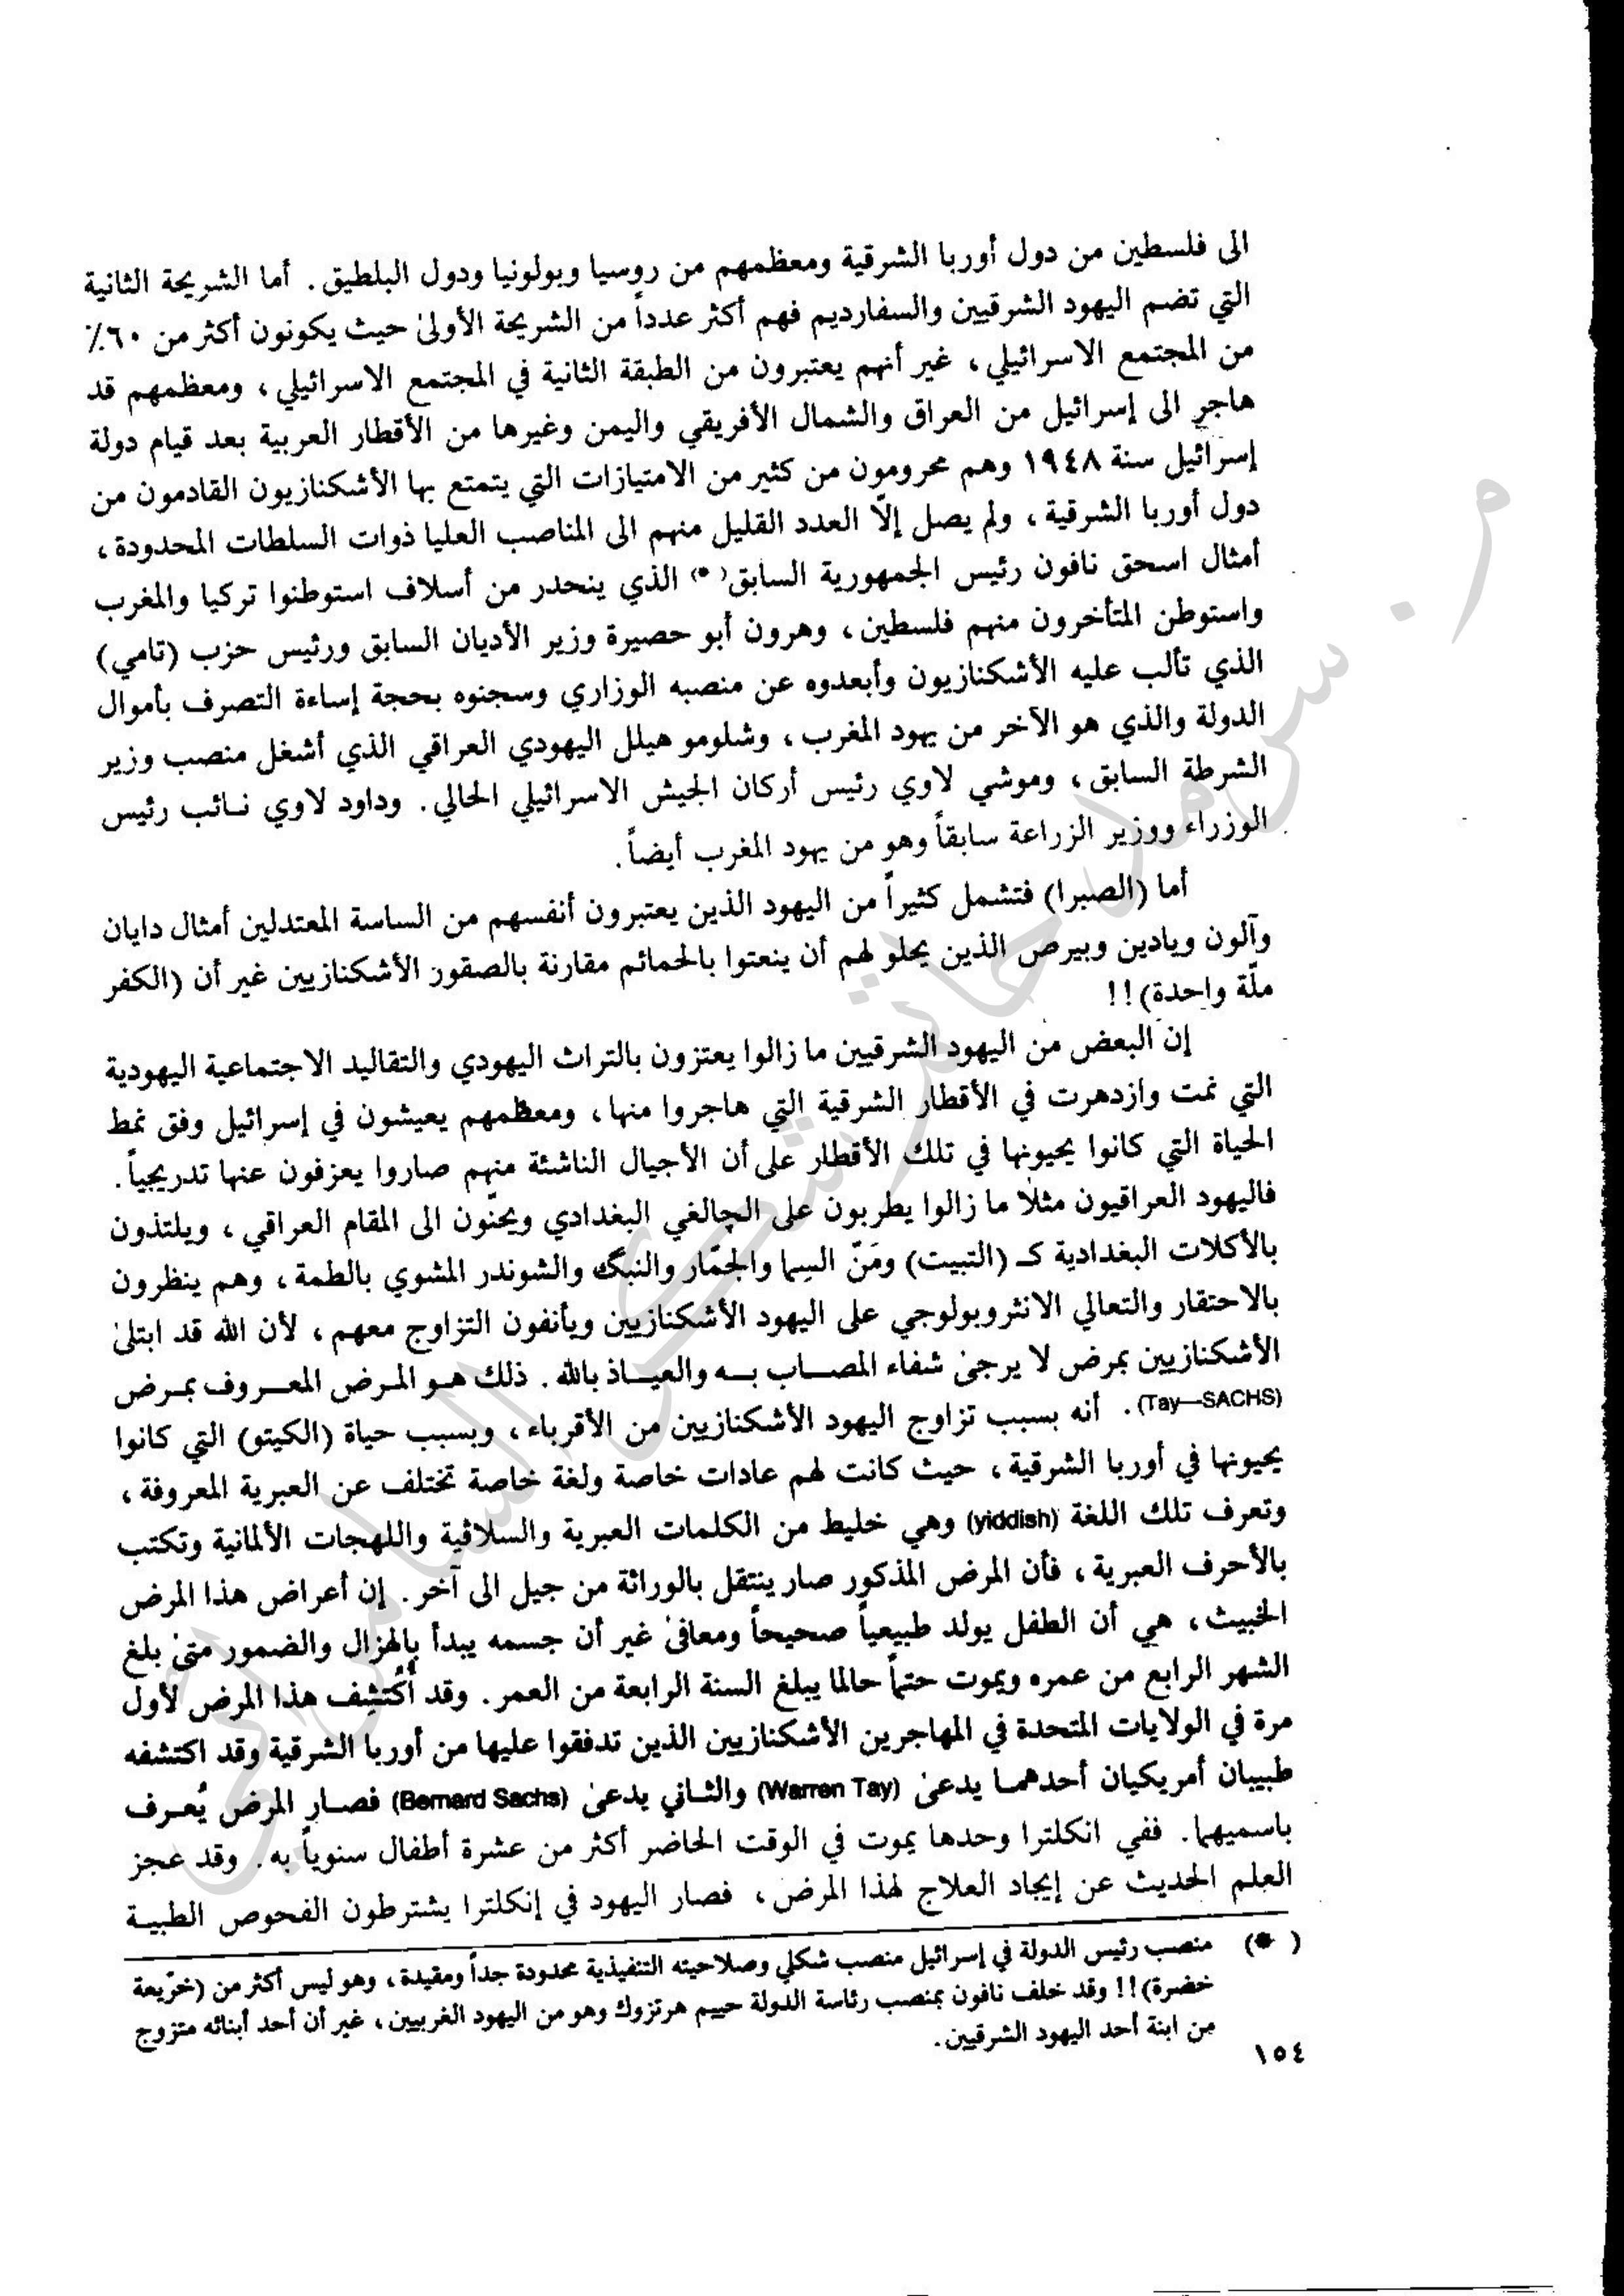 الى فلسطين من دول أوربا الشرقية ومعظمهم من روسيا وبولونيا ودول البلطيق. أما الشريحة الثانية
التي تضم اليهود الشرقيين والسفارديم فهم أكثر عدداً من الشريحة الأولىٰ حيث يكونون أكثر من ٦٠٪
من المجتمع الاسرائيلي، غير أنهم يعتبرون من الطبقة الثانية في المجتمع الاسرائيلي، ومعظمهم قد
هاجر الى إسرائيل من العراق والشمال الأفريقي واليمن وغيرها من الأقطار العربية بعد قيام دولة
إسرائيل سنة ١٩٤٨ وهم محرومون من كثير من الامتيازات التي يتمتع بها الأشكنازيون القادمون من
دول أوربا الشرقية، ولم يصل إلّا العدد القليل منهم الى المناصب العليا ذوات السلطات المحدودة،
أمثال اسحق نافون رئيس الجمهورية السابق(*) الذي ينحدر من أسلاف استوطنوا تركيا والمغرب
واستوطن المتأخرون منهم فلسطين، وهرون أبو حصيرة وزير الأديان السابق ورئيس حزب (تامي)
الذي تألب عليه الأشكنازيون وأبعدوه عن منصبه الوزاري وسجنوه بحجة إساءة التصرف بأموال
الدولة والذي هو الآخر من يهود المغرب، وشلومو هيلل اليهودي العراقي الذي أشغل منصب وزير
الشرطة السابق، وموشي لاوي رئيس أركان الجيش الاسرائيلي الحالي. وداود لاوي نائب رئيس
الوزراء ووزير الزراعة سابقاً وهو من يهود المغرب أيضاً.
أما (الصبرا) فتشمل كثيراً من اليهود الذين يعتبرون أنفسهم من الساسة المعتدلين أمثال دايان
وآلون ويادين وبيرص الذين يحلو لهم أن ينعتوا بالحمائم مقارنة بالصقور الأشكنازيين غير أن (الكفر
ملّة واحدة)!!
إن البعض من اليهود الشرقيين ما زالوا يعتزون بالتراث اليهودي والتقاليد الاجتماعية اليهودية
التي نمت وازدهرت في الأقطار الشرقية التي هاجروا منها، ومعظمهم يعيشون في إسرائيل وفق نمط
الحياة التي كانوا يحيونها في تلك الأقطار على أن الأجيال الناشئة منهم صاروا يعزفون عنها تدريجياً.
فاليهود العراقيون مثلاً ما زالوا يطربون على الچالغي البغدادي ويحنّون الى المقام العراقي، ويلتذون
بالأكلات البغدادية كـ (التبيت) ومَنّ السِما والجمّار والنبگ والشوندر المشوي بالطمة، وهم ينظرون
بالاحتقار والتعالي الانثروبولوجي على اليهود الأشكنازيين ويأنفون التزاوج معهم، لأن الله قد ابتلىٰ
الأشكنازيين بمرض لا يرجىٰ شفاء المصاب به والعياذ بالله. ذلك هو المرض المعروف بمرض
(Tay—SACHS). أنه بسبب تزاوج اليهود الأشكنازيين من الأقرباء، وبسبب حياة (الكيتو) التي كانوا
يحيونها في أوربا الشرقية، حيث كانت لهم عادات خاصة ولغة خاصة تختلف عن العبرية المعروفة،
وتعرف تلك اللغة (yiddish) وهي خليط من الكلمات العبرية والسلاڤية واللهجات الألمانية وتكتب
بالأحرف العبرية، فأن المرض المذكور صار ينتقل بالوراثة من جيل الى آخر. إن أعراض هذا المرض
الخبيث، هي أن الطفل يولد طبيعياً صحيحاً ومعافىٰ غير أن جسمه يبدأ بالهزال والضمور متىٰ بلغ
الشهر الرابع من عمره ويموت حتماً حالما يبلغ السنة الرابعة من العمر. وقد أُكتشِف هذا المرض لأول
مرة في الولايات المتحدة في المهاجرين الأشكنازيين الذين تدفقوا عليها من أوربا الشرقية وقد اكتشفه
طبيبان أمريكيان أحدهما يدعىٰ (Warren Tay) والثاني يدعىٰ (Bernard Sachs) فصار المرض يُعرف
باسميهما. ففي انكلترا وحدها يموت في الوقت الحاضر أكثر من عشرة أطفال سنوياً به. وقد عجز
العلم الحديث عن إيجاد العلاج لهذا المرض، فصار اليهود في إنكلترا يشترطون الفحوص الطبية
(*) منصب رئيس الدولة في إسرائيل منصب شكلي وصلاحيته التنفيذية محدودة جداً ومقيدة، وهو ليس أكثر من (خرّيعة
خضرة)!! وقد خلف نافون بمنصب رئاسة الدولة حييم هرتزوك وهو من اليهود الغربيين، غير أن أحد أبنائه متزوج
من ابنة أحد اليهود الشرقيين.
١٥٤